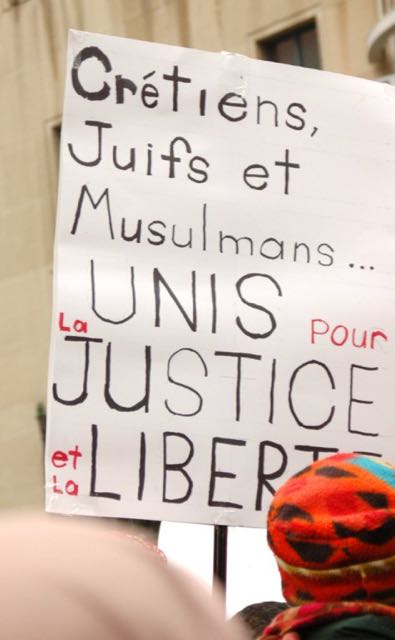 Crétiens,
Juifs et
Musulmans...
UNIS pour
la JUSTICE
et la LIBERTÉ